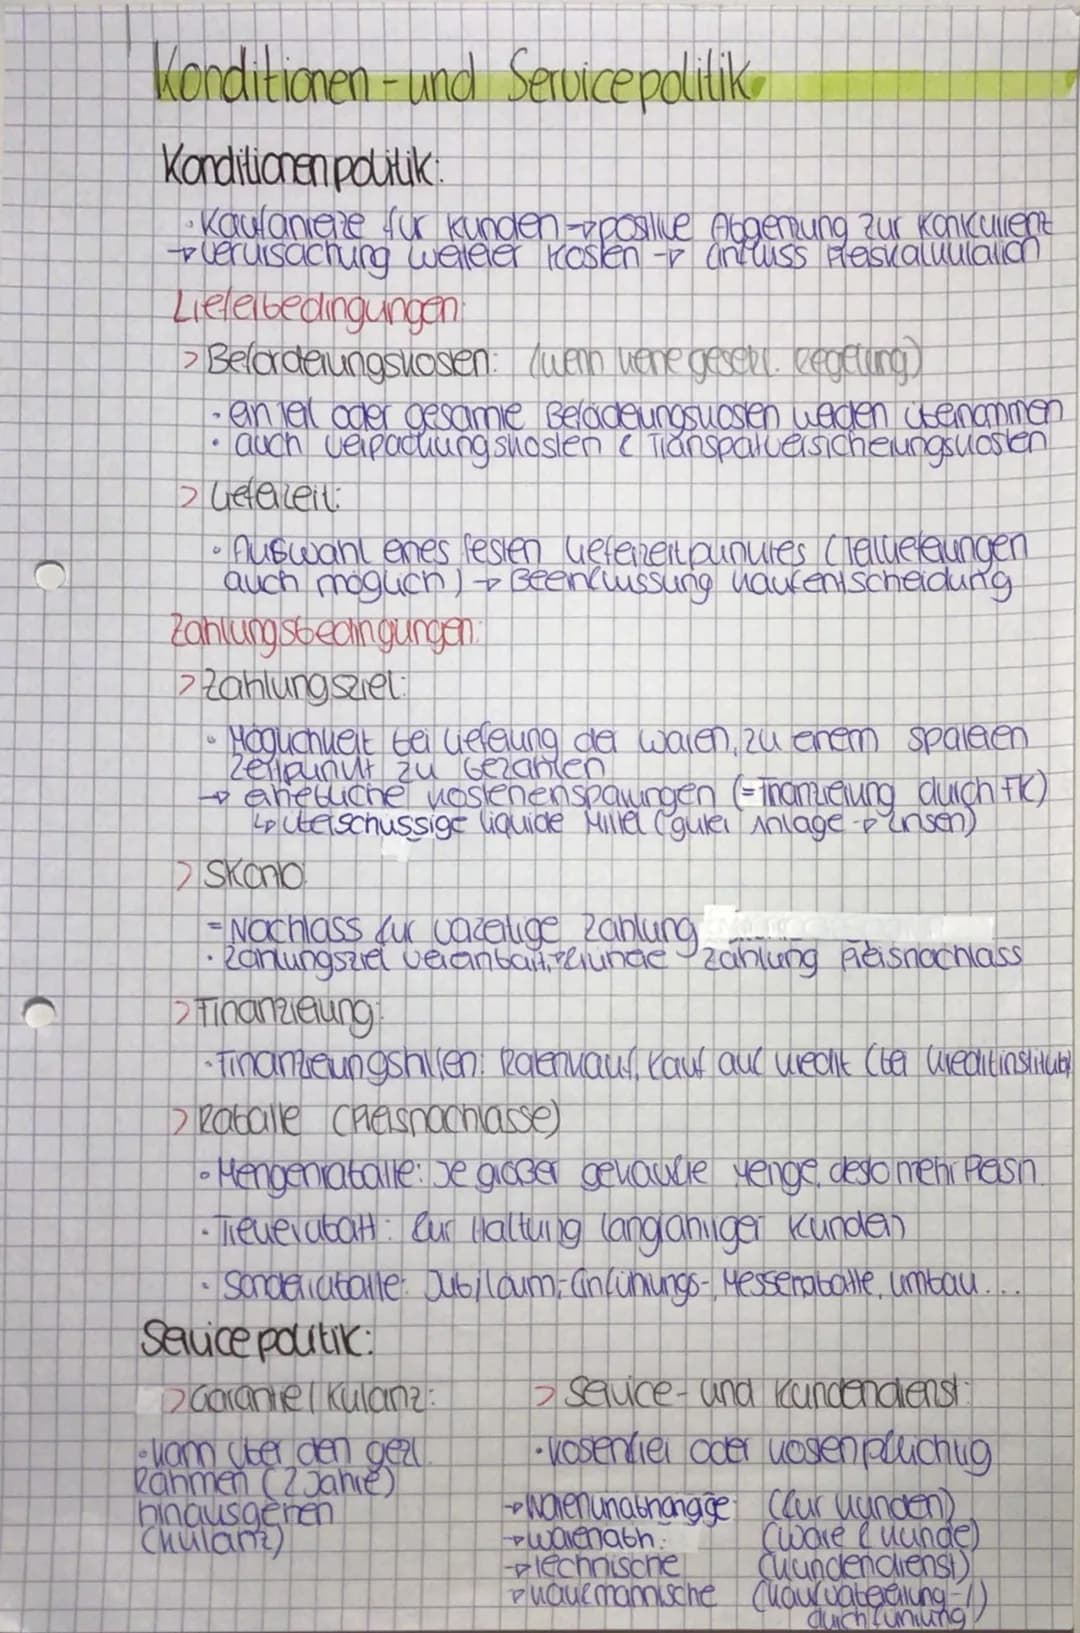 Konditionen-und Servicepolitik
Konditionenpolitik:
· Kaufanreize für Kunden → positive Abgrenzung zur Konkurrenz
→ Verursachung weiterer Kosten → Einfluss Preiskalkulation
Lieferbedingungen:
> Beförderungskosten: (wenn keine gesetzl. Regelung)
· ein Teil oder gesamte Beförderungskosten werden übernommen
· auch Verpackungskosten & Transportversicherungskosten
> Lieferzeit:
· Auswahl eines festen Lieferzeitpunktes (Teillieferungen
auch möglich) → Beeinflussung Kaufentscheidung
Zahlungsbedingungen:
> Zahlungsziel:
· Möglichkeit bei Lieferung der Waren, zu einem späteren
Zeitpunkt zu bezahlen
→ erhebliche Kosteneinsparungen (=Finanzierung durch FK)
↳ überschüssige liquide Mittel (guter Anlage → Zinsen)
> Skonto
= Nachlass für vorzeitige Zahlung
· Zahlungsziel vereinbart, Zahlung Preisnachlass
> Finanzierung:
· Finanzierungshilfen: Ratenkauf, Kauf auf Kredit (bei Kreditinstitut)
> Rabatte (Preisnachlässe)
· Mengenrabatte: Je größer gekaufte Menge, desto mehr Preisn.
· Treuerabatt: Zur Haltung langjähriger Kunden
· Sonderrabatte: Jubiläum-, Einführungs-, Messerabatte, Umbau...
Servicepolitik:
> Garantie/Kulanz:
· kann über den gezl.
Rahmen (2 Jahre)
hinausgehen
(Kulanz)
> Service-und Kundendienst:
· kostenfrei oder kostenpflichtig
→ Warenunabhängige: (für Kunden)
→ warenabh.: (Ware & Kunde)
→ technische (Kundendienst)
→ kaufmännische (Kaufvorbereitung-/)
durchführung